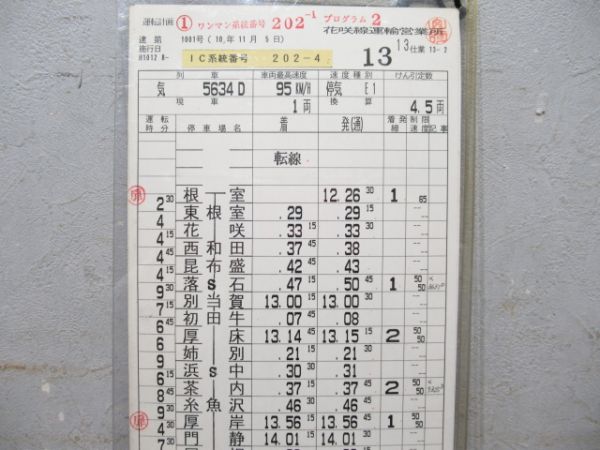 運転計画 ① ワンマン系統番号 202-1 プログラム 2
花咲線運輸営業所
達 第 1001号 (10.年11月 5日)
13 13仕業 13-2
施行日 H1012 8-
IC系統番号 202-4
列車 車両最高速度 速度種別 けん引定数
気 5634D 95KM/H 停気 E1
現車 1両 換算 4.5両
運転時分 停車場名 着 発(通) 着発線 制限速度 記事
転線
根室 12.26 30 1 65
2 30 東根室 .29 .29 15
4 花咲 .33 15 .33 30
4 15 西和田 .37 45 .38
4 45 昆布盛 .42 45 .43
4 15 落石 .47 15 .50 45 1 50 50
9 30 別当賀 13.00 15 13.00 30
7 15 初田牛 .07 45 .08
6 45 厚床 13.14 45 13.15 15 2 50 50
6 姉別 .21 15 .21 30
9 浜中 .30 30 .31
6 15 茶内 .37 15 .37 45 2 50 50
8 45 糸魚沢 .46 30 .46 45
9 30 厚岸 13.56 15 13.56 45 1 50 50
4 30 門静 14.01 15 14.01 30